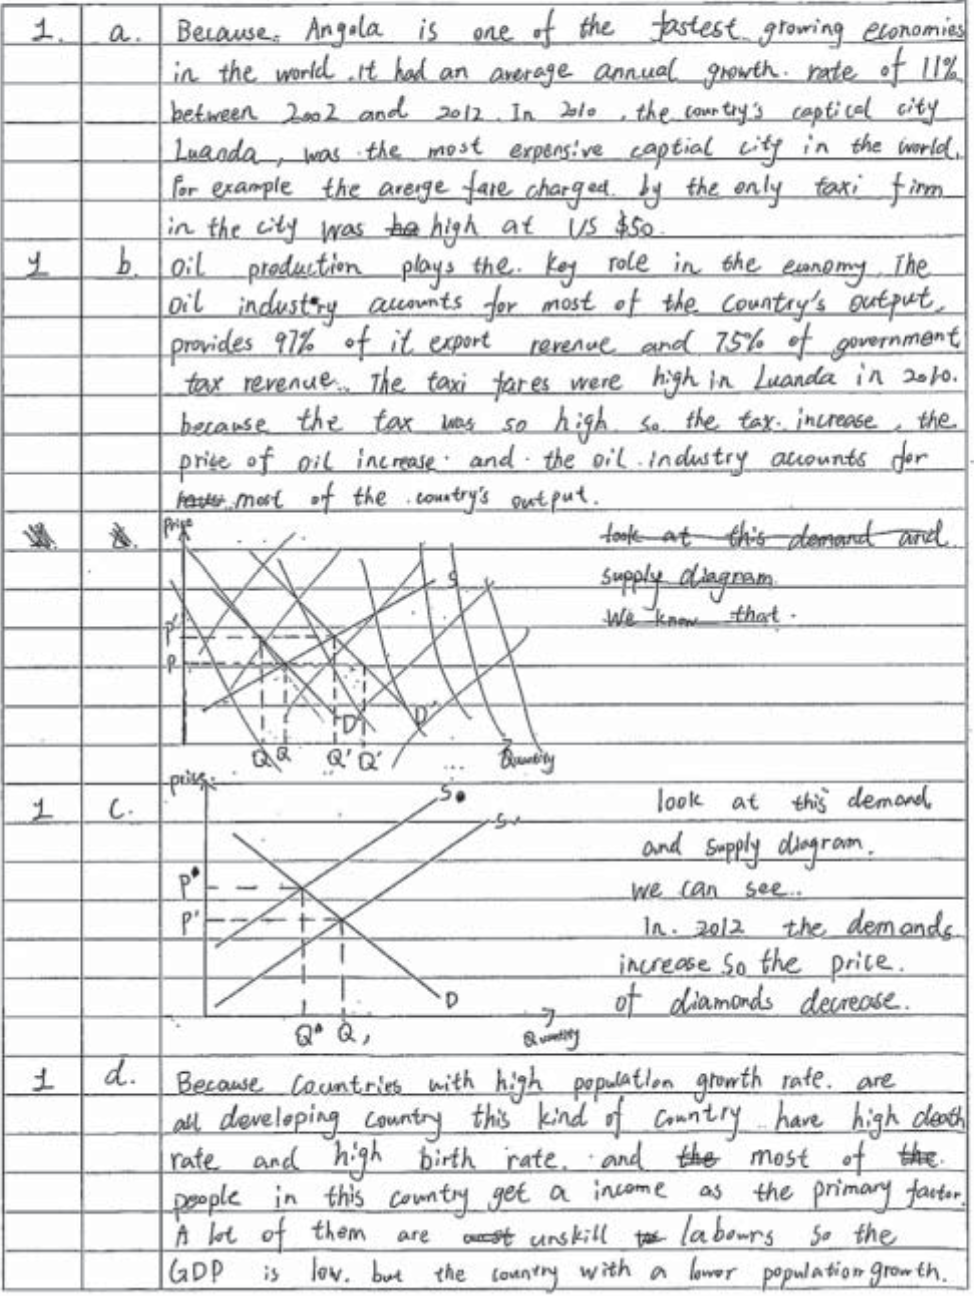 1. a. Because. Angola is one of the fastest growing economies
in the world. it had an average annual growth. rate of 11%
between 2002 and 2012. In 2010, the country's captical city
Luanda, was the most expensive captial city in the world.
For example the averge fare charged by the only taxi firm
in the city was ha high at US $50.
1 b. Oil production plays the. key role in the economy. The
oil industry accounts for most of the country's output,
provides 97% of it export revenue and 75% of government
tax revenue. The taxi fares were high in Luanda in 2010.
because the tax was so high so the tax increase, the
price of oil increase and the oil industry accounts for
most of the country's output.
price
look at this demand and
supply diagram
We know that.
S
P'
P
D D'
Q Q Q' Q' Quantity
price
1 c. look at this demand
and supply diagram.
we can see..
In 2012 the demands
increase so the price.
of diamonds decrease.
S
S'
P
P'
D
Q Q, Quantity
1 d. Because Countries with high population growth rate. are
all developing country this kind of country have high death
rate and high birth rate. and the most of the.
people in this country get a income as the primary factor.
A lot of them are unskill labours so the
GDP is low. but the country with a lower population growth.